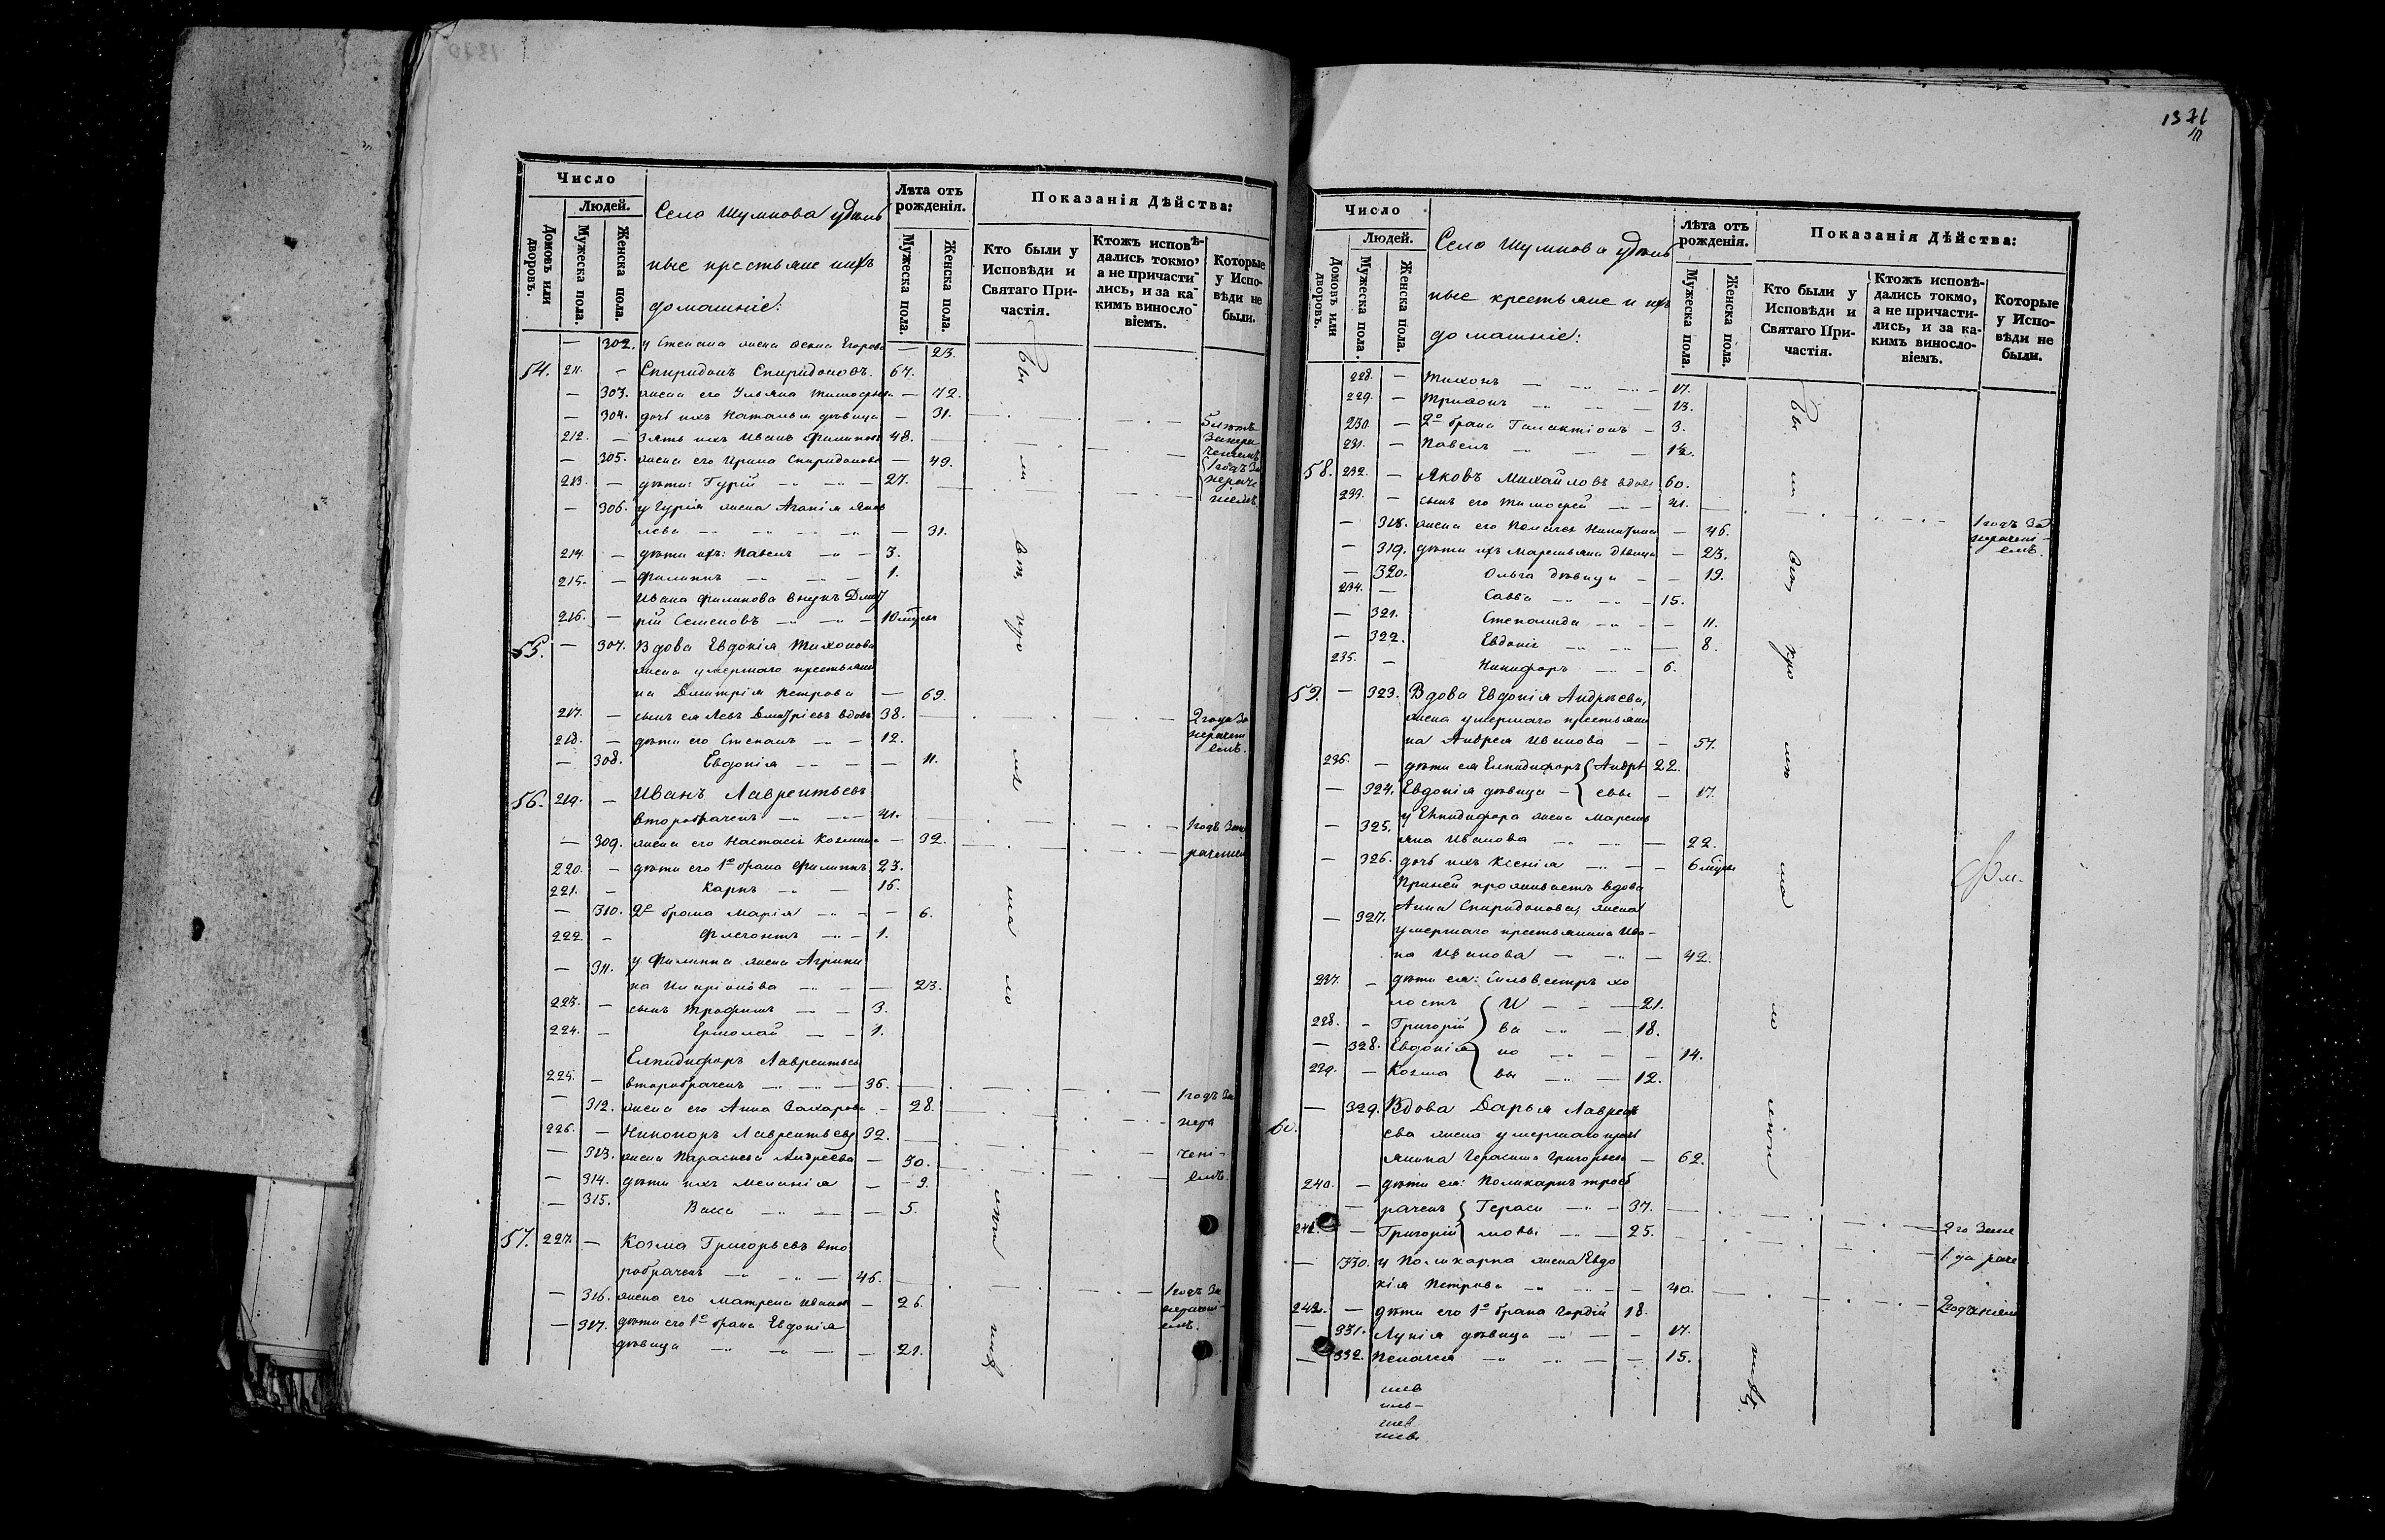 Число
Людей.
Домовъ или дворовъ.
Мужеска пола.
Женска пола.
Село Шумкова удѣль
ные крестьяне и ихъ
домашніе:
Лѣта отъ рожденія.
Мужеска пола.
Женска пола.
Показанія Дѣйства:
Кто были у Исповѣди и Святаго Причастія.
Ктожъ исповѣдались токмо, а не причастились, и за какимъ винословіемъ.
Которые у Исповѣди не были.
— 302. у Степана жена Егорова — 23.
54. 211. — Спиридонъ Спиридоновъ. 67.
— 303. жена его Ульяна — 72.
— 304. дочь ихъ Наталья дѣвица — 31.
212. — зять ихъ Иванъ Филиповъ 48.
— 305. жена его Ирина Спиридонова — 49.
213. — дѣти: Гурій — 27.
— 306. у Гурія жена Агапія Яков
лева — 31.
214. — дѣти ихъ: Павелъ — 3.
215. — Филиппъ — 1.
Ивана Филипова внукъ Дмит
216. — рій Семеновъ — 10 мѣсяц
55. — 307. Вдова Евдокія Тихонова
жена умершаго крестьяни
на Дмитрія Петрова — 69.
217. — сынъ ея Левъ Дмитріевъ вдовъ 38.
218. — дѣти его Степанъ — 12.
— 308. Евдокія — 11.
2 года за
нерачені
емъ.
56. 219. — Иванъ Лаврентьевъ
второбраченъ — 41.
— 309. жена его Настасія Козмина — 32.
220. — дѣти его 1го брака Филиппъ 23.
221. — Карпъ — 16.
— 310. 2го брака Марія — 6.
222. — Флегонтъ — 1.
— 311. у Филиппа жена Агрипи
на Иларіонова — 23.
223. — сынъ Трофимъ — 3.
224. — Ермолай — 1.
Елпидифоръ Лаврентьевъ
225. — второбраченъ — 36.
— 312. жена его Анна Захарова — 28.
226. — Никоноръ Лаврентьевъ 32.
— 313. жена Параскева Андреева — 30.
— 314. дѣти ихъ Меланія — 9.
— 315. Васса — 5.
1 годъ за
нера
чені-
емъ.
57. 227. — Козма Григорьевъ вто
робраченъ — 46.
— 316. жена его Матрена Иванов — 26.
— 317. дѣти его 1го брака Евдокія
дѣвица — 21.
1 годъ за
нерачені-
емъ.
1371
Число
Людей.
Домовъ или дворовъ.
Мужеска пола.
Женска пола.
Село Шумкова удѣль
ные крестьяне и ихъ
домашніе:
Лѣта отъ рожденія.
Мужеска пола.
Женска пола.
Показанія Дѣйства:
Кто были у Исповѣди и Святаго Причастія.
Ктожъ исповѣдались токмо, а не причастились, и за какимъ винословіемъ.
Которые у Исповѣди не были.
228. — Тихонъ — 17.
229. — Трифонъ — 13.
230. — 2го брака Галактіонъ — 3.
231. — Павелъ — 1½.
58. 232. — Яковъ Михайловъ вдовъ 60.
233. — сынъ его Тимофей — 41.
— 318. жена его Пелагея Никитина — 46.
— 319. дѣти ихъ Маремьяна дѣвица — 23.
— 320. Ольга дѣвица — 19.
234. — Савва — 15.
— 321. Степанида — 11.
— 322. Евдокія — 8.
235. — Никифоръ — 6.
1 годъ за
нерачені-
емъ.
59. — 323. Вдова Евдокія Андреева,
жена умершаго крестьяни
на Андрея Иванова — 57.
236. — дѣти ея Елпидифоръ { Андре 22.
— 324. Евдокія дѣвица — { евы — 17.
— 325. у Елпидифора жена Маремь
яна Иванова — 22.
— 326. дочь ихъ Ксенія — 6 мѣсяц
При ней проживаетъ вдова
— 327. Анна Спиридонова, жена
умершаго крестьянина Ива-
на Иванова — 42.
237. — дѣти ея: Сильвестръ хо
лостъ { И — 21.
238. — Григорій { ва — 18.
— 328. Евдокія { но — 14.
239. — Козма { вы — 12.
60. — 329. Вдова Дарья Лаврен
ева жена умершаго крест
янина Герасима Григорьева — 62.
240. — дѣти ея: Поликарпъ троеб
раченъ { Гераси — 37.
241. — Григорій { мовы — 25.
— 330. у Поликарпа жена Евдо
кія Петрова — 40.
242. — дѣти его 1го брака Гордій 18.
— 331. Лукія дѣвица — 17.
— 332. Пелагея — 15.